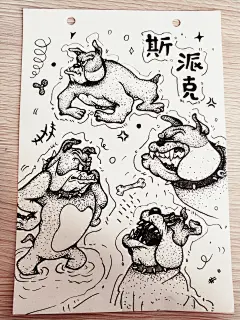 斯派克